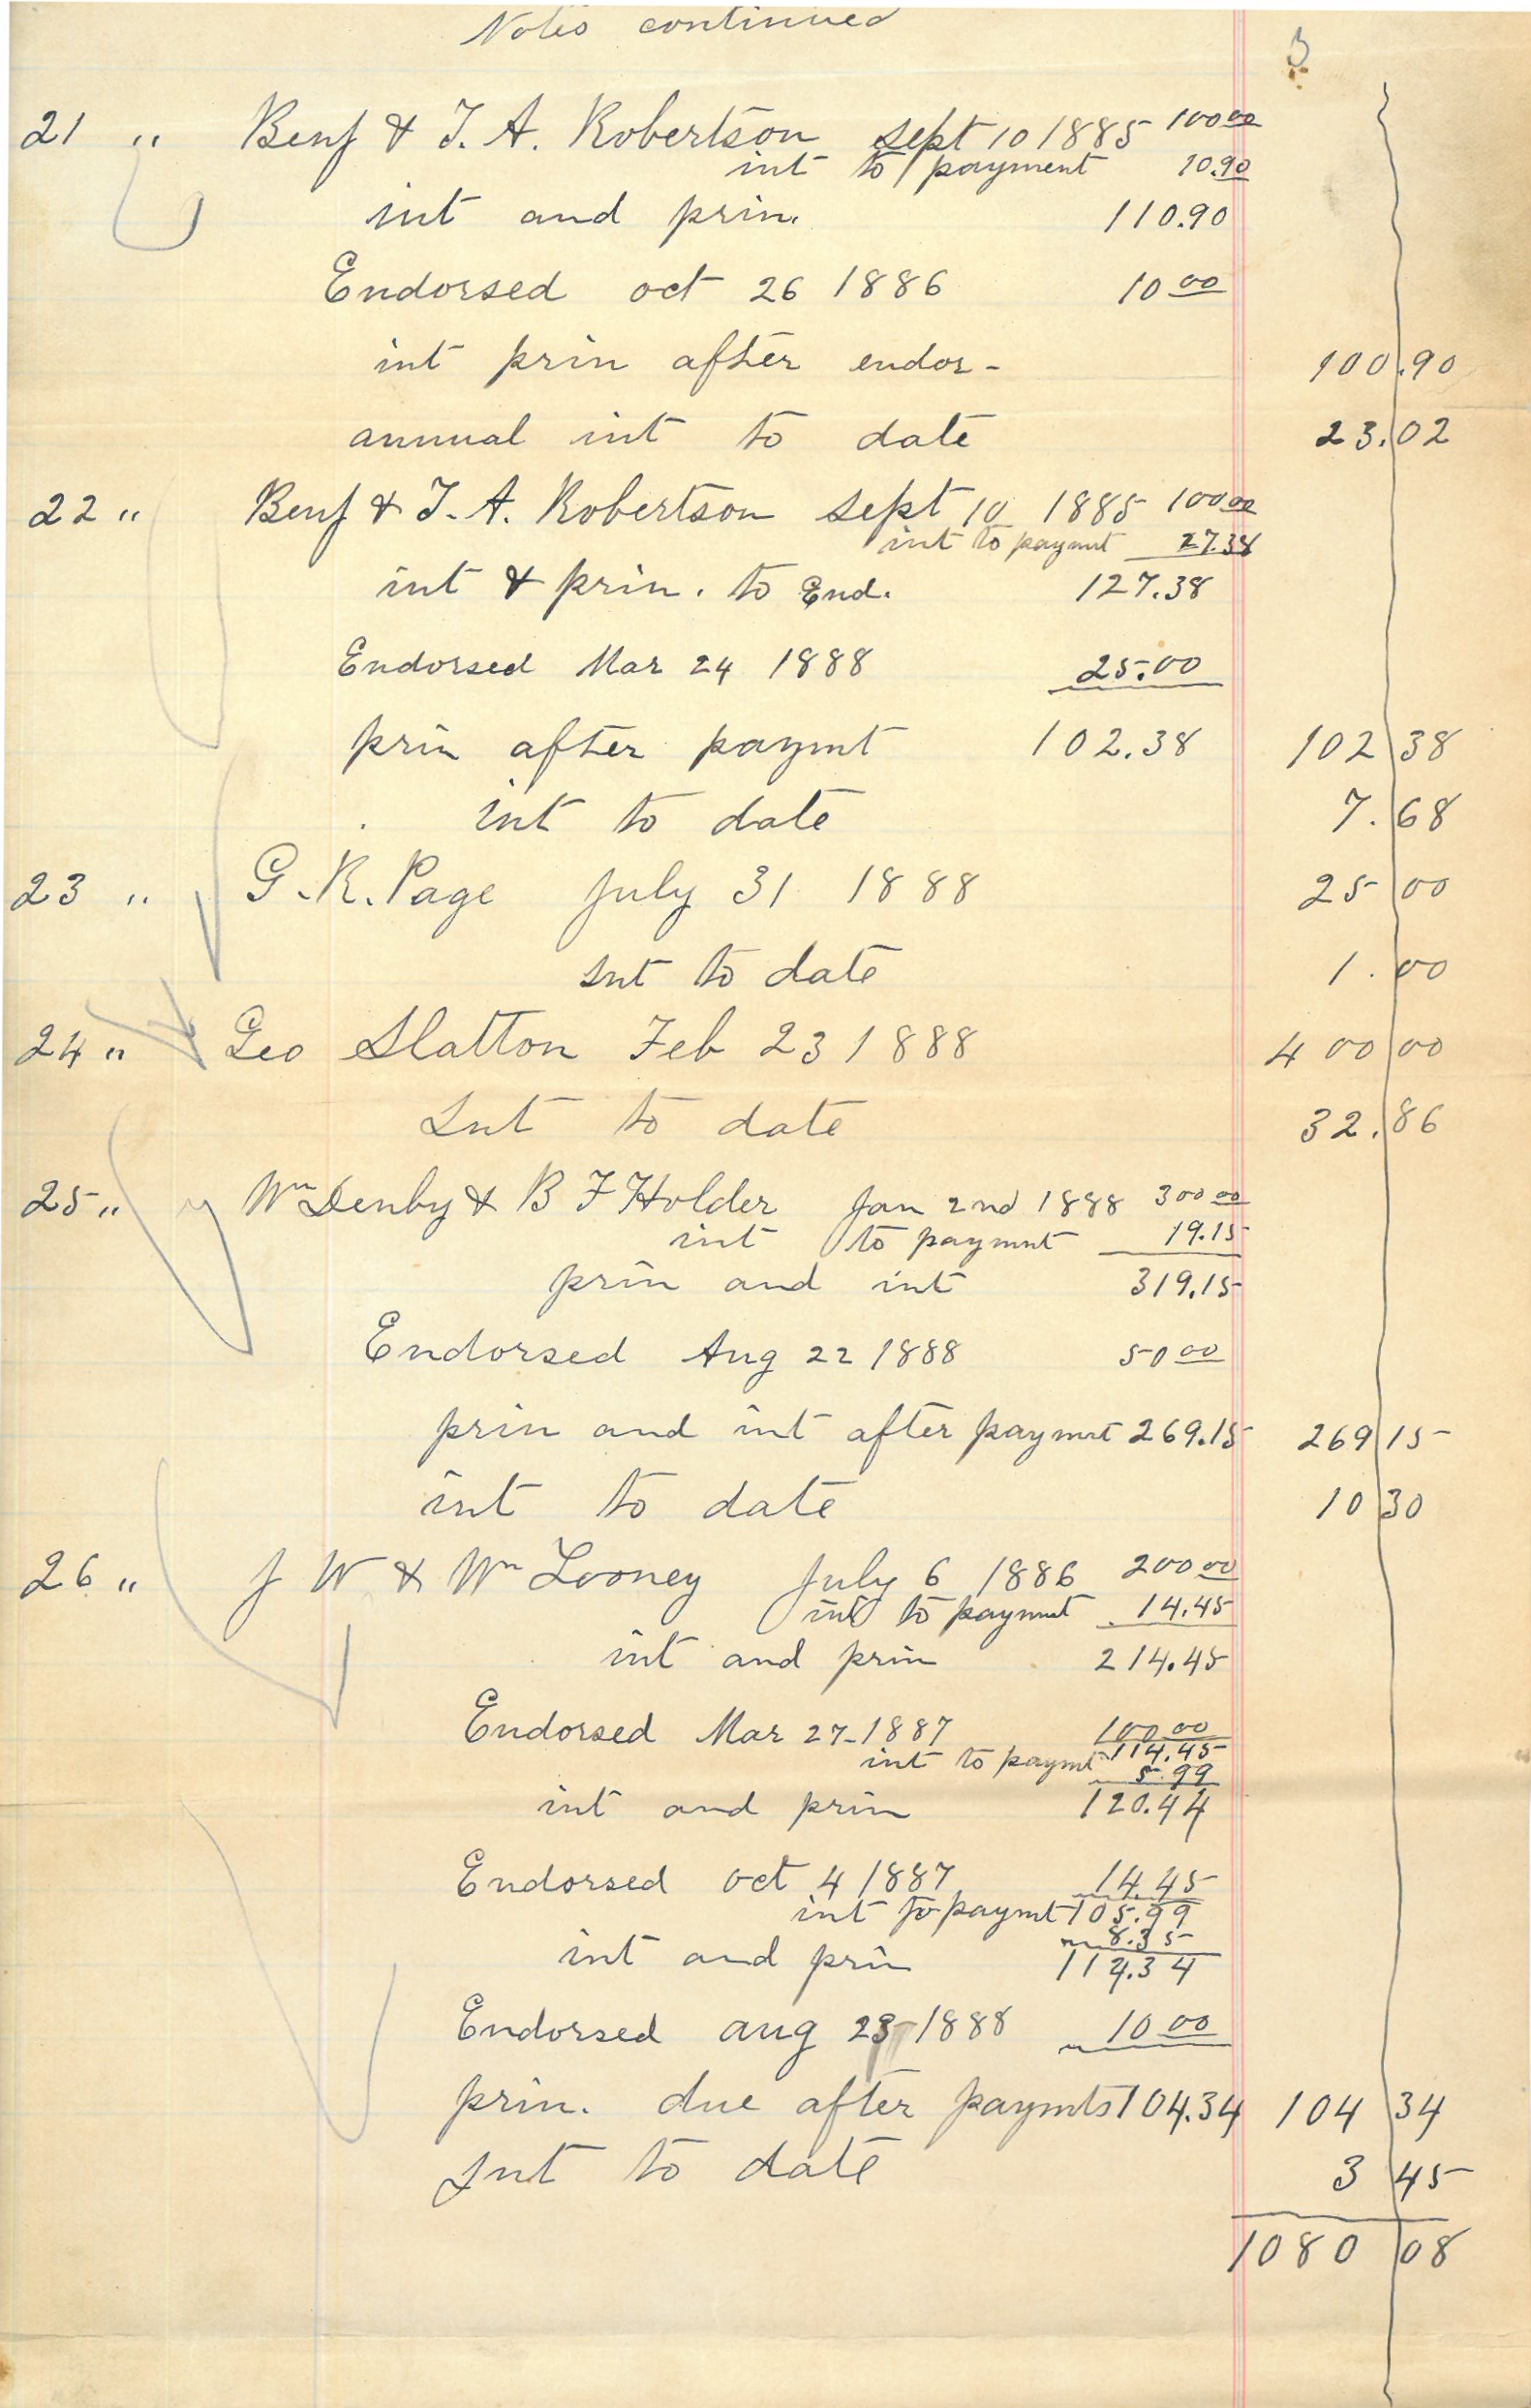 Notes continued
3
21 " Benj & T. A. Robertson sept 10 1885 100 00
int to payment 10.90
int and prin. 110.90
Endorsed oct 26 1886 10 00
int prin after endor- 100.90
annual int to date 23.02
22 " Benj & T. A. Robertson sept 10 1885 100 00
int to paymnt 27.38
int & prin. to End. 127.38
Endorsed Mar 24 1888 25.00
prin after paymt 102.38 102 38
int to date 7.68
23 " G. R. Page July 31 1888 25 00
Int to date 1.00
24 " Geo Slatton Feb 23 1888 400 00
Int to date 32.86
25 " Wm Denby & B F Holder Jan 2nd 1888 300 00
int to paymnt 19.15
prin and int 319.15
Endorsed Aug 22 1888 50 00
prin and int after paymnt 269.15 269 15
int to date 10 30
26 " J W & Wm Looney July 6 1886 200 00
int to paymnt 14.45
int and prin 214.45
Endorsed Mar 27-1887 100 00
114.45
int to paymt 5.99
int and prin 120.44
Endorsed oct 4 1887 14.45
int to paymt 105.99
8.35
int and prin 114.34
Endorsed aug 23-1888 10 00
prin. due after paymts 104.34 104 34
Int to date 3 45
1080 08